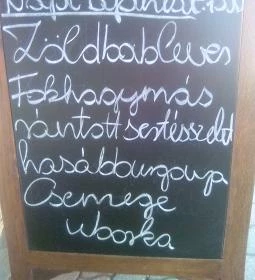 Napi ajánlat:
Zöldbableves
Fokhagymás
rántott sertésszelet
hasábburgonya
Csemege
uborka